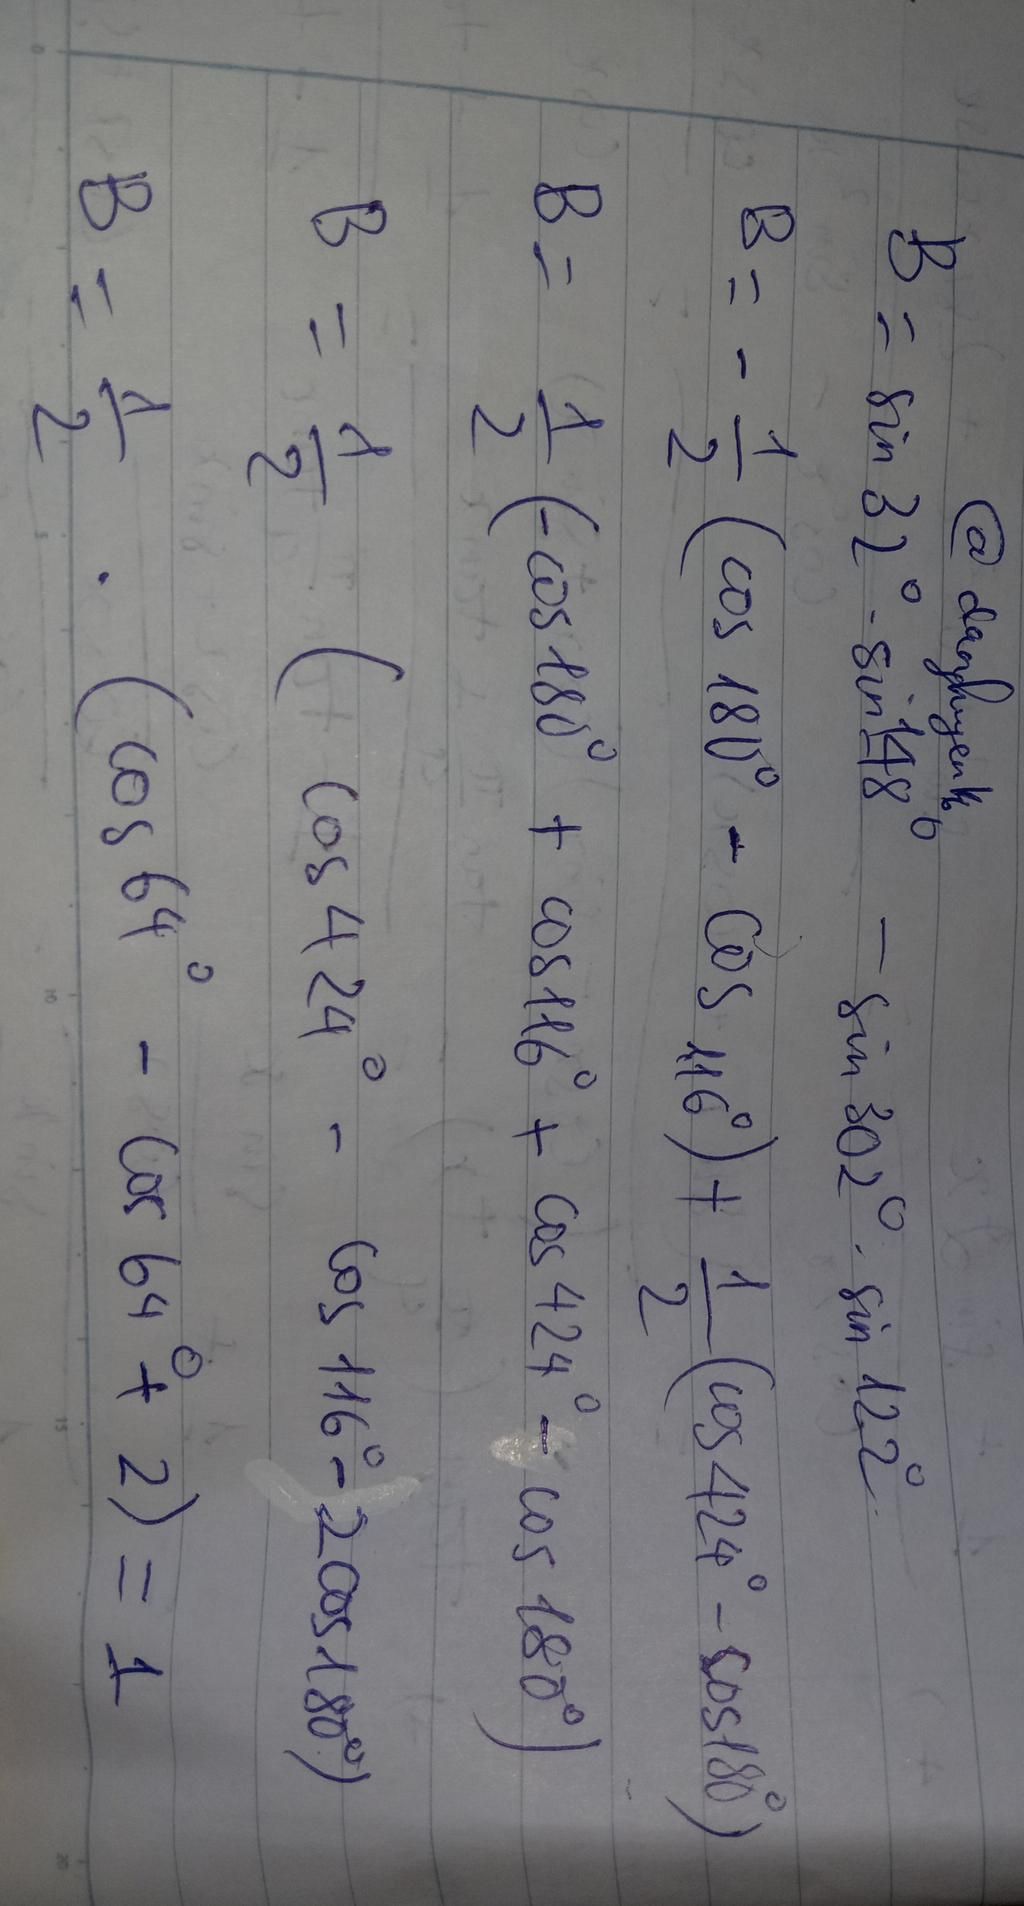 @ danghuyenk
B = sin 32° . sin 148° - sin 302° . sin 122°
B = - 1/2 (cos 180° - cos 116°) + 1/2 (cos 424° - cos 180°)
B = 1/2 (-cos 180° + cos 116° + cos 424° - cos 180°)
B = 1/2 (cos 424° - cos 116° - 2cos 180°)
B = 1/2 . (cos 64° - cos 64° + 2) = 1